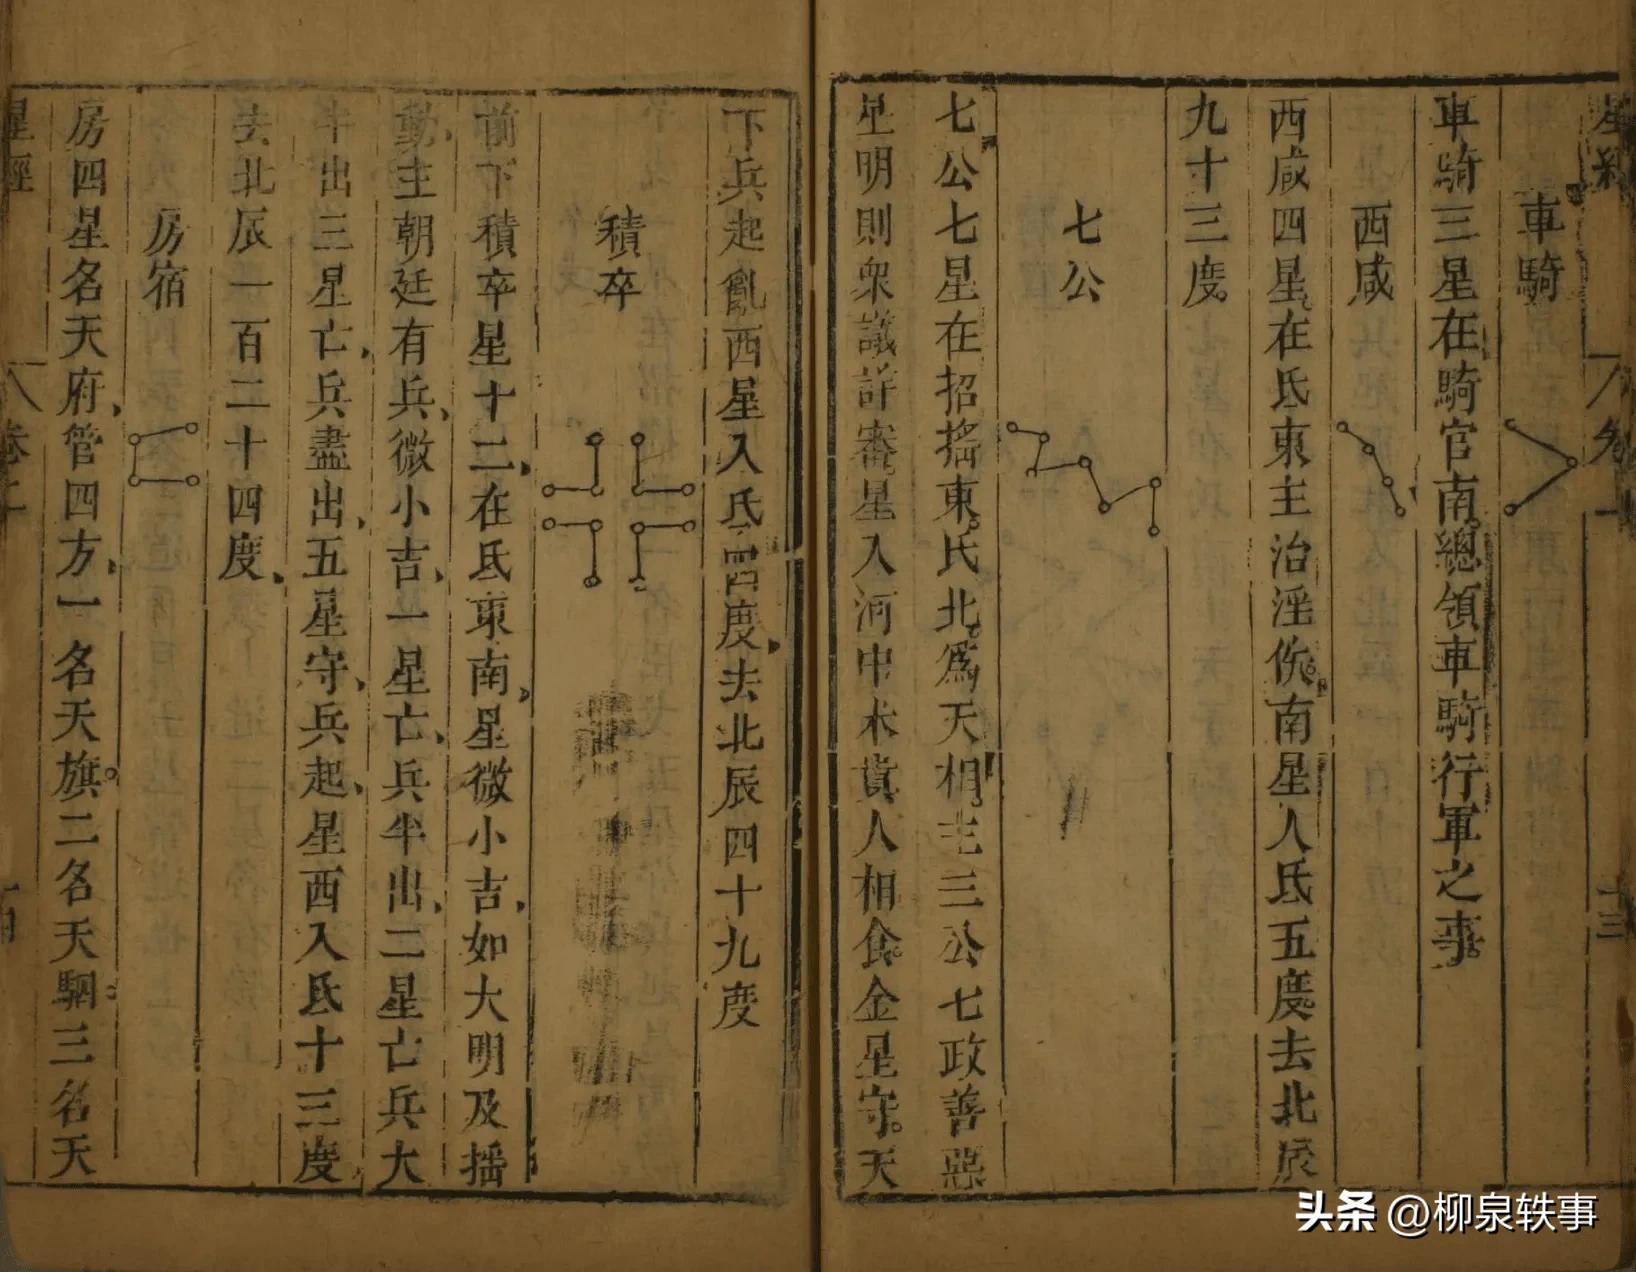 車騎
車騎三星在騎官南總領車騎行軍之事
西咸
西咸四星在氐東主治淫佚南星入氐五度去北辰
九十三度
七公
七公七星在招搖東氐北為天相主三公七政善惡
星明則衆議詳審星入河中米貴人相食金星守天
下兵起亂西星入氐四度去北辰四十九度
積卒
積卒星十二在氐東南星微小吉如大明及搖
動主朝廷有兵微小吉一星亡兵半出二星亡兵大
半出三星亡兵盡出五星守兵起星西入氐十三度
去北辰一百二十四度
房宿
房四星名天府管四方一名天旗二名天駟三名天
星經
卷上
头条 @柳泉轶事